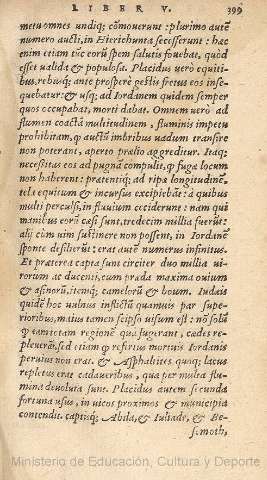 LIBER V. 399
metu omnes undiq; cõmouerant: plurimo autẽ
numero aucti, in Hierichunta secesserunt: hæc
enim etiã tũc eorũ spem salutis fouebat, quòd
esset ualida & populosa. Placidus uerò equiti-
bus, rebusq; ante prosperè gestis fretus eos inse-
quebatur: & usq; ad Iordanem quidem semper
quos occupabat, morti dabat. Omnem uerò ad
flumen coactã multitudinem, fluminis impetu
prohibitam, ꝙ auctũ imbribus uadum transire
non poterant, aperto prælio aggreditur. Itaq;
necessitas eos ad pugnã compulit, ꝙ fugæ locum
non haberent: prætentiq; ad ripã longitudinẽ,
tela equitum & incursus excipiebãt: à quibus
multi perculsi, in fluuium ceciderunt: nam qui
manibus eorũ cæsi sunt, tredecim millia fuerũt:
alij cùm uim sustinere non possent, in Iordanẽ
sponte desilierũt: erat autẽ numerus infinitus.
Et præterea capta sunt circiter duo millia ui-
rorum ac ducenti, cum præda maxima ouium
& asinorũ, itemq; camelorũ & boum. Iudæis
quidẽ hoc uulnus inflictũ quamuis par supe-
rioribus, maius tamen seipso uisum est: nõ solũ
ꝙ cunctam regionẽ qua fugerant, cædes re-
pleuerat, sed etiam ꝙ refertus mortuis Iordanis
peruius non erat. & Asphaltites quoq; lacus
repletus erat cadaueribus, quæ per multa flu-
mina deuoluta sunt. Placidus autem secunda
fortuna usus, in uicos proximos & municipia
contendit. captisq; Abila, & Iuliade, & Be-
simoth,
Ministerio de Educación, Cultura y Deporte